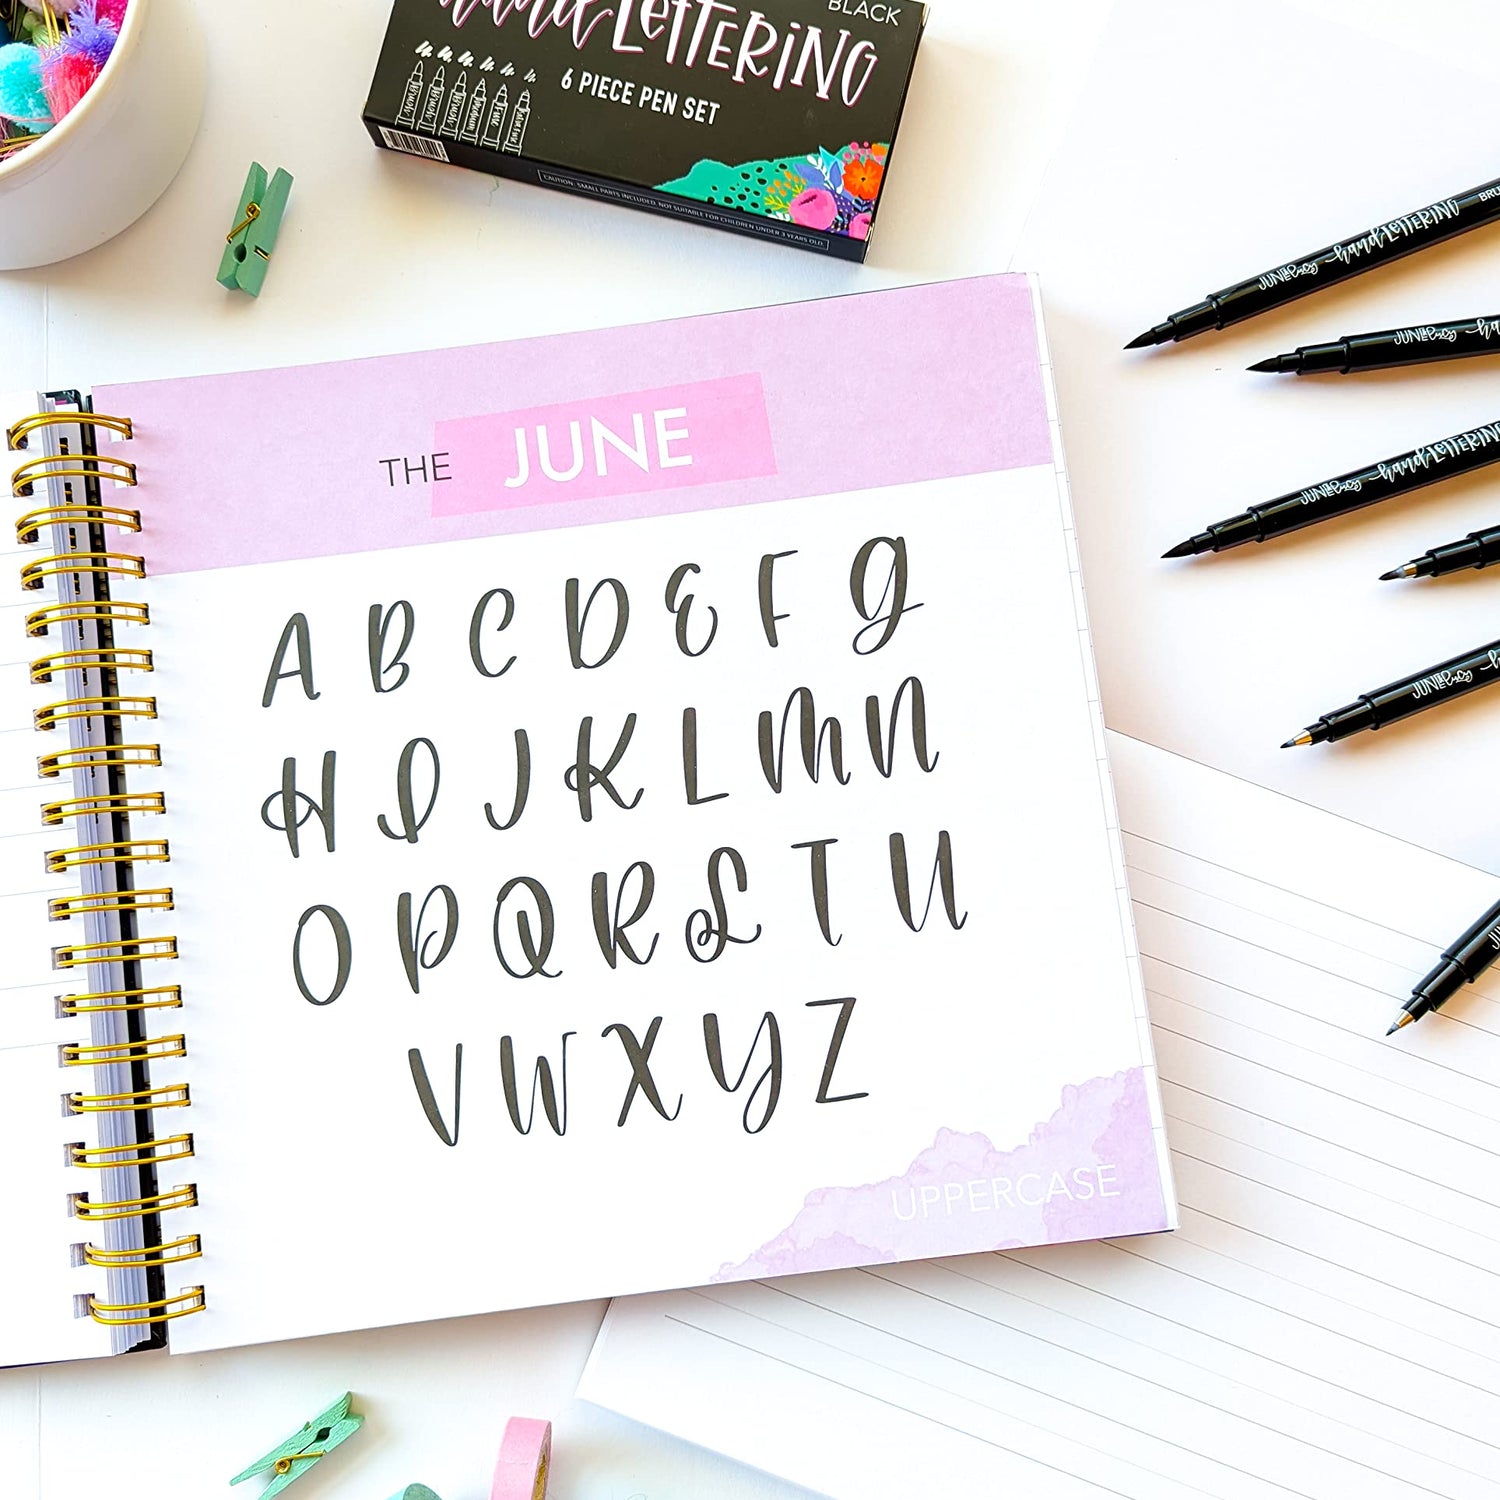 BLACK
hand LETTERING
6 PIECE PEN SET
CAUTION: SMALL PARTS INCLUDED. NOT SUITABLE FOR CHILDREN UNDER 3 YEARS OLD.
JUNE & Lucy hand LETTERING
JUNE & Lucy
JUNE & Lucy hand LETTERING
JUNE & Lucy
THE JUNE
A B C D E F G
H I J K L M N
O P Q R S T U
V W X Y Z
UPPERCASE